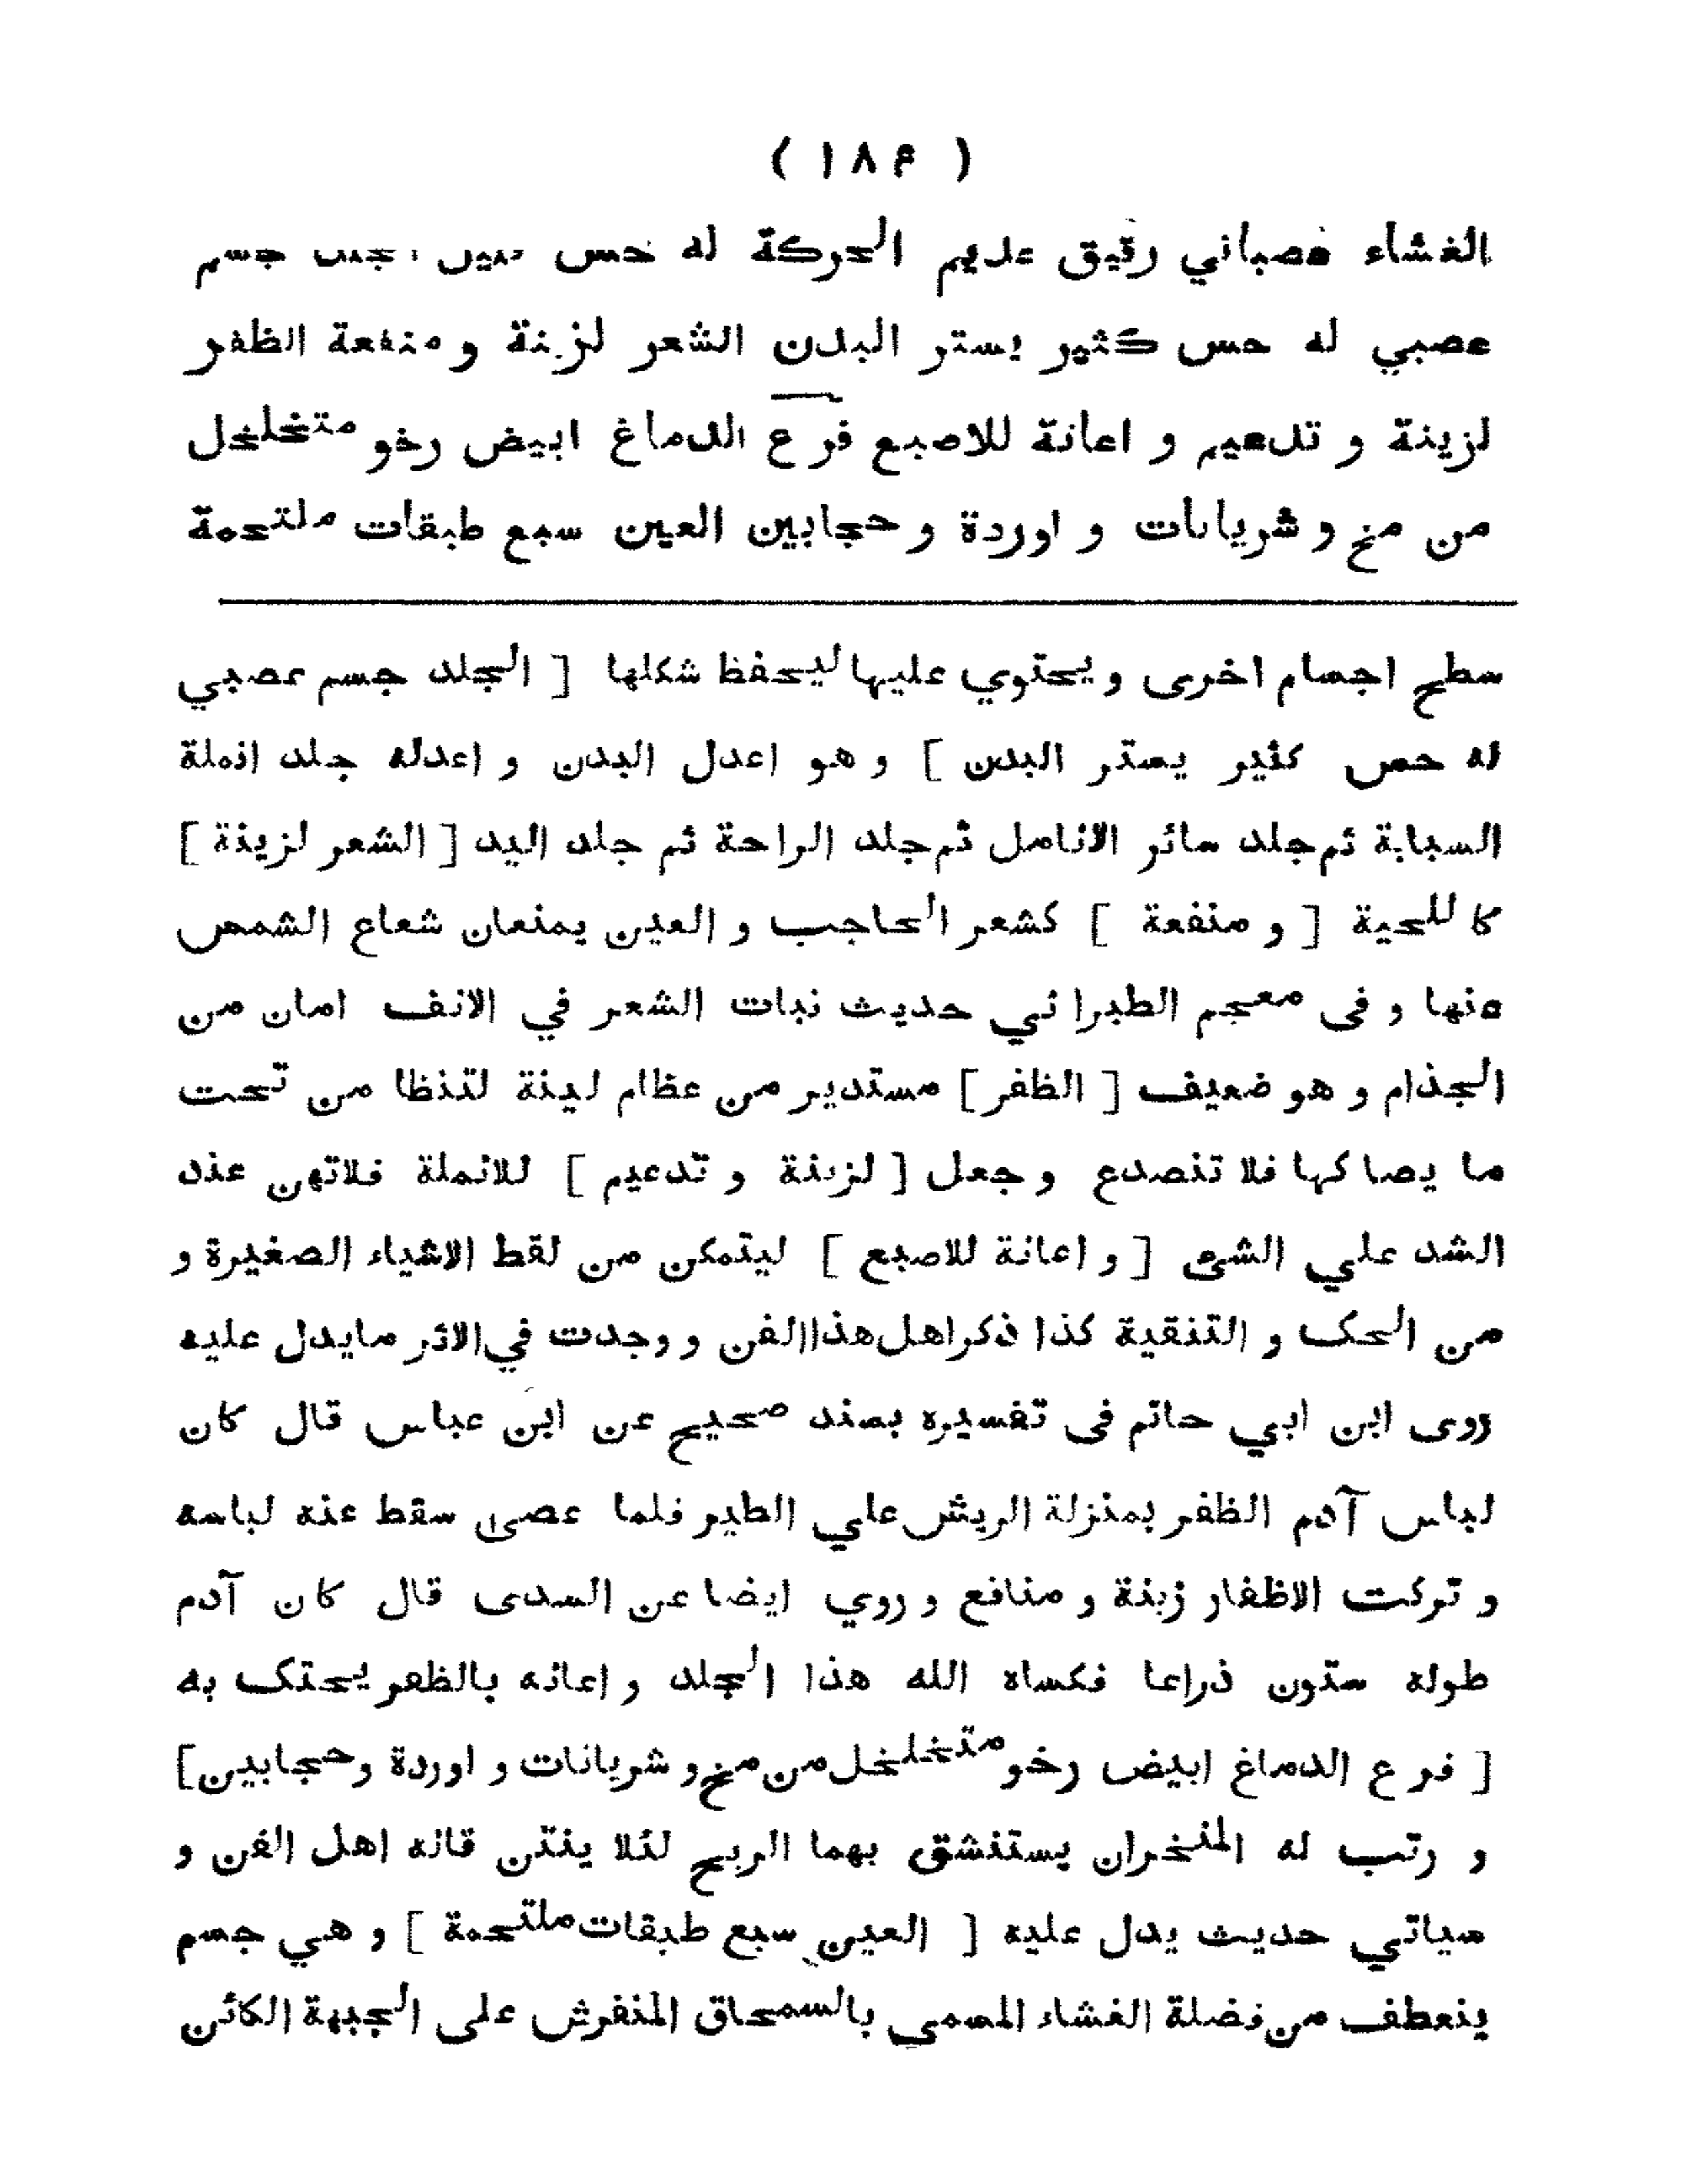 ( ١٨۴ )
الغشاء عصباني رقيق عديم الحركة له حس جسم
عصبي له حس كثير يستر البدن الشعر لزينة و منفعة الظفر
لزينة و تدعيم و اعانة للاصبع فرع الدماغ ابيض رخو متخلخل
من مخ و شريانات و اوردة و حجابين العين سبع طبقات ملتحمة
سطح اجسام اخرى و يحتوي عليها ليحفظ شكلها [ الجلد جسم عصبي
له حس كثير يستر البدن ] و هو اعدل البدن و اعدله جلد انملة
السبابة ثم جلد سائر الانامل ثم جلد الراحة ثم جلد اليد [ الشعر لزينة ]
كا للحية [ و منفعة ] كشعر الحاجب و العين يمنعان شعاع الشمس
منها و فى معجم الطبراني حديث نبات الشعر في الانف امان من
الجذام و هو ضعيف [ الظفر ] مستدير من عظام لينة لتنظا من تحت
ما يصاكها فلا تنصدع و جعل [ لزينة و تدعيم ] للانملة فلاتهن عند
الشد علي الشئ [ و اعانة للاصبع ] ليتمكن من لقط الاشياء الصغيرة و
من الحك و التنقية كذا ذكر اهل هذا الفن و وجدت في الاثر مايدل عليه
روى ابن ابي حاتم فى تفسيره بسند صحيح عن ابن عباس قال كان
لباس آدم الظفر بمنزلة الريش علي الطير فلما عصى سقط عنه لباسه
و تركت الاظفار زينة و منافع و روي ايضا عن السدى قال كان آدم
طوله ستون ذراعا فكساه الله هذا الجلد و اعانه بالظفر يحتك به
[ فرع الدماغ ابيض رخو متخلخل من مخ و شريانات و اوردة و حجابين ]
و رتب له المنخران يستنشق بهما الريح لئلا ينتن قاله اهل الفن و
سياتي حديث يدل عليه [ العين سبع طبقات ملتحمة ] و هي جسم
ينعطف من فضلة الغشاء المسمى بالسمحاق المنفرش على الجبهة الكائن